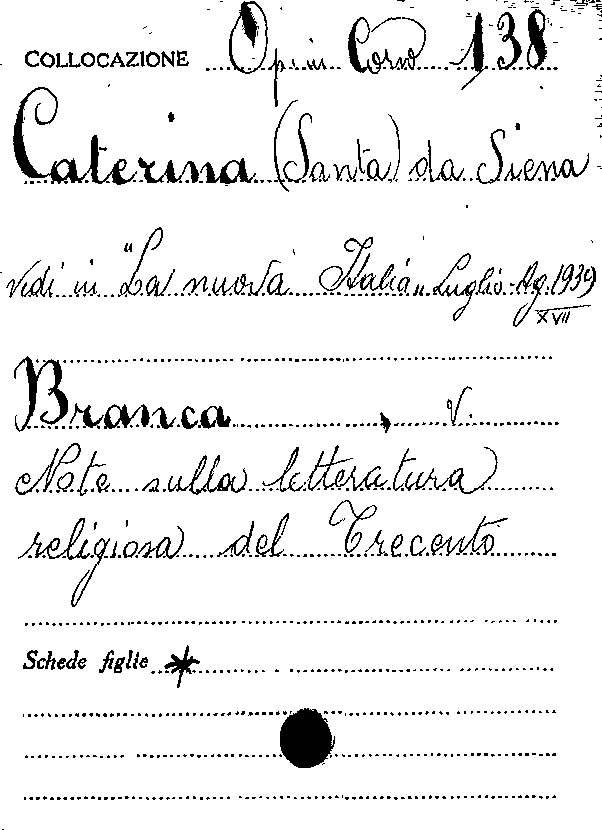 COLLOCAZIONE Op. in Corso 138
Caterina (Santa) da Siena
vedi in "La nuova Italia" Luglio-Ag. 1939
XVII
Branca, V.
Note sulla letteratura
religiosa del Trecento
Schede figlie *